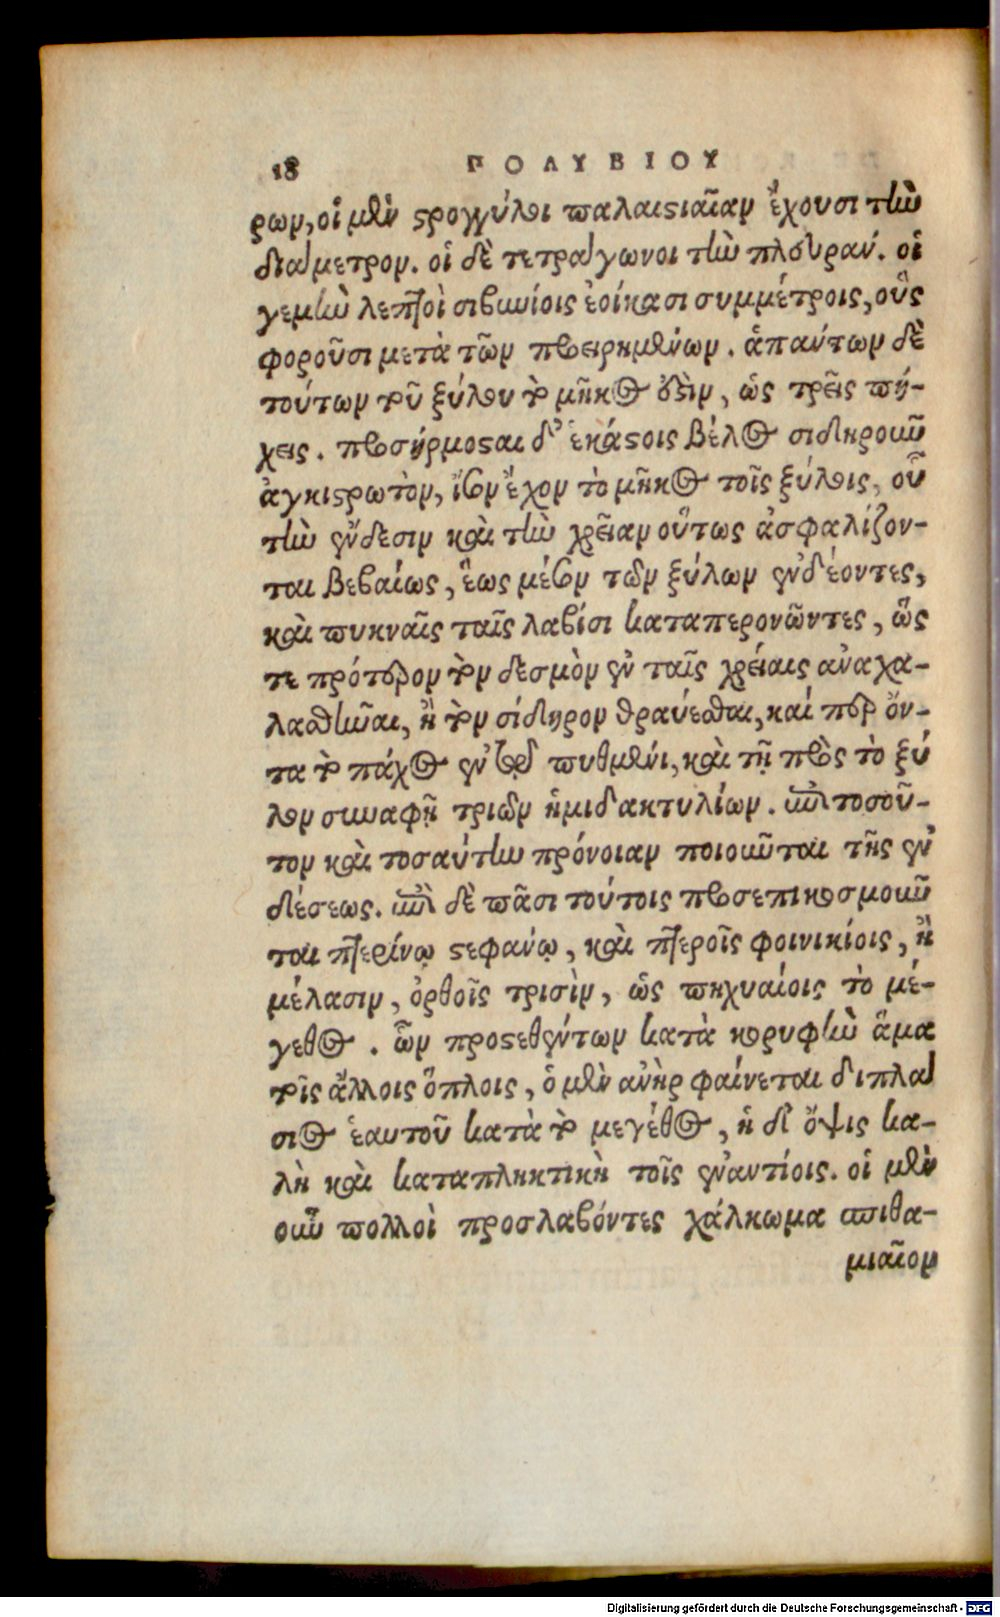 18 ΠΟΛΥΒΙΟΥ
ρων, οἱ μὲν στρογγύλοι παλαιστιαῖαν ἔχουσι τὴν
διάμετρον. οἱ δὲ τετράγωνοι τὴν πλευράν. οἵ
γε μὴν λεπτοὶ σιβυνίοις ἐοίκασι συμμέτροις, οὓς
φοροῦσι μετὰ τῶν προειρημένων. ἁπάντων δὲ
τούτων τοῦ ξύλου τὸ μῆκος ἐστὶν, ὡς τρεῖς πή-
χεις. προσήρμοσται δ' ἑκάστοις βέλος σιδηροῦν
ἀγκιστρωτὸν, ἴσον ἔχον τὸ μῆκος τοῖς ξύλοις, οὗ
τὴν ἔνδεσιν καὶ τὴν χρείαν οὕτως ἀσφαλίζον-
ται βεβαίως, ἕως μέσων τῶν ξύλων ἐνδέοντες,
καὶ πυκναῖς ταῖς λαβίσι καταπερονῶντες, ὥς
τε πρότερον τὸν δεσμὸν ἐν ταῖς χρείαις ἀναχα-
λασθῆναι, ἢ τὸν σίδηρον θραύεσθαι, καί περ ὄν-
τα τὸ πάχος ἐν τῷ πυθμένι, καὶ τῇ πρὸς τὸ ξύ
λον συναφῇ τριῶν ἡμιδακτυλίων. ἐπὶ τοσοῦ-
τον καὶ τοσαύτην πρόνοιαν ποιοῦνται τῆς ἐν
δέσεως. ἐπὶ δὲ πᾶσι τούτοις προσεπικοσμοῦν
ται πτερίνῳ στεφάνῳ, καὶ πτεροῖς φοινικίοις, ἢ
μέλασιν, ὀρθοῖς τρισὶν, ὡς πηχυαίοις τὸ μέ-
γεθος. ὧν προστεθέντων κατὰ κορυφὴν ἅμα
τοῖς ἄλλοις ὅπλοις, ὁ μὲν ἀνὴρ φαίνεται διπλά
σιος ἑαυτοῦ κατὰ τὸ μεγέθος, ἡ δ' ὄψις κα-
λὴ καὶ καταπληκτικὴ τοῖς ἐναντίοις. οἱ μὲν
οὖν πολλοὶ προσλαβόντες χάλκωμα σπιθα-
μιαῖον
Digitalisierung gefördert durch die Deutsche Forschungsgemeinschaft - DFG